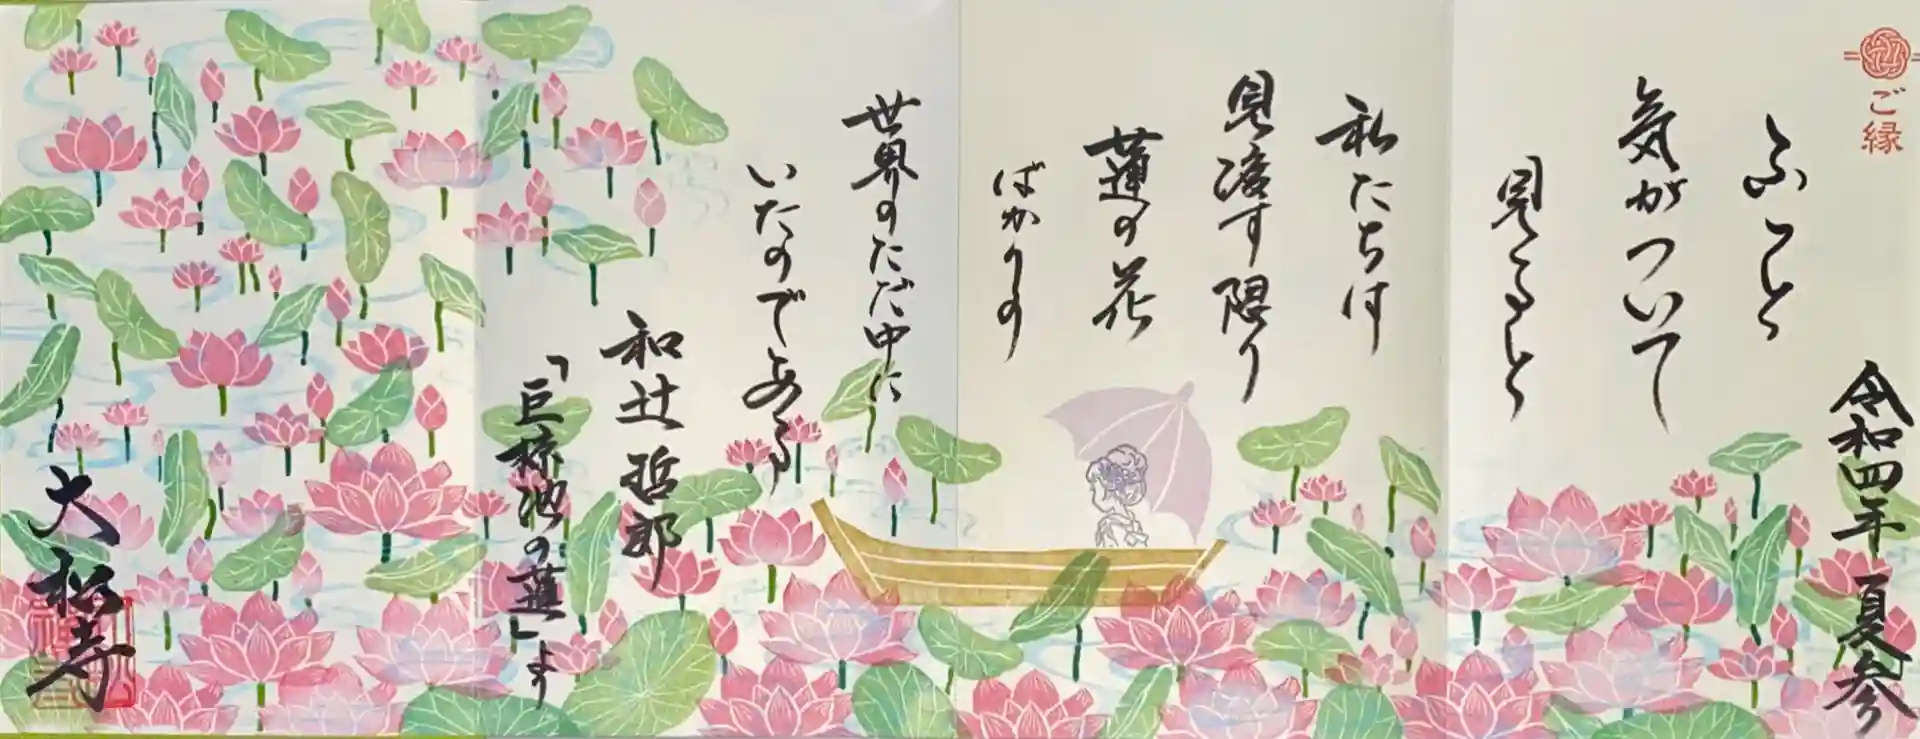 ご縁
令和四年 夏参
ふと
気がついて
見ると
私たちは
見渡す限り
蓮の花
ばかりの
世界のただ中に
いたのである
和辻哲郎
「巨椋池の蓮」より
大松寺